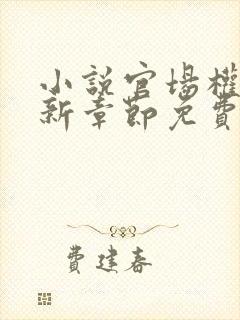 小說官場權
新章節免費
費建春